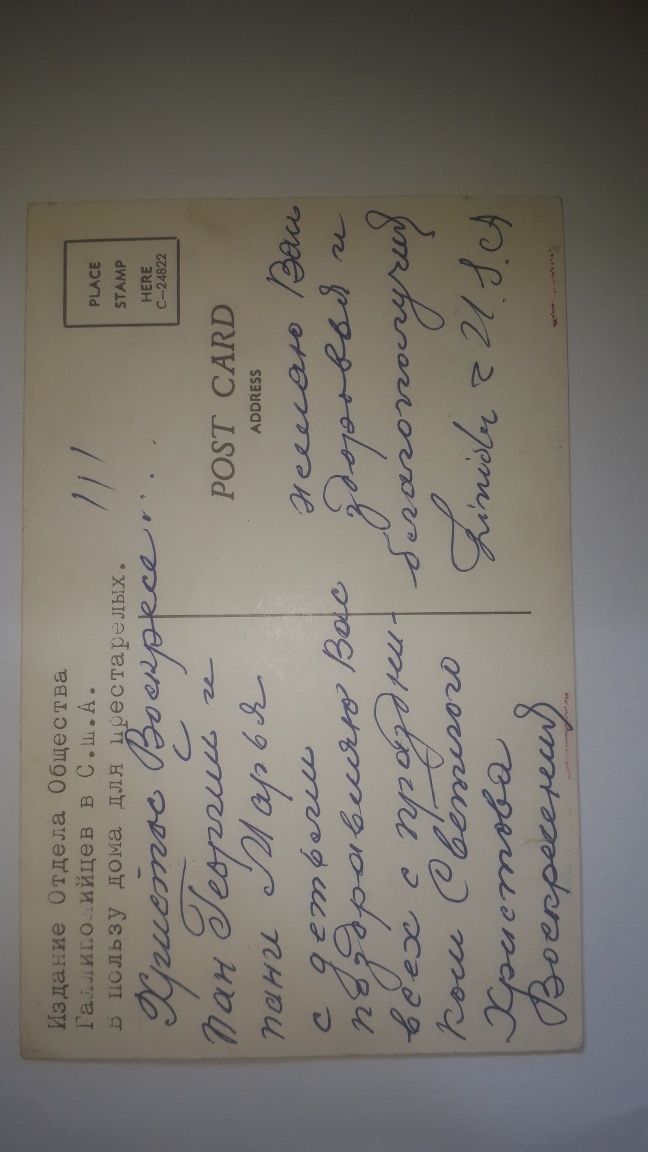 Издание Отдела Общества
Галлиполийцев в С.Ш.А.
В пользу дома для престарелых.
Христос Воскресе...!!!
Пан Георгий и
пани Марья
с детьми
поздравляю Вас
всех с праздни-
ком Светлого
Христова
Воскресения
PLACE
STAMP
HERE
C-24822
POST CARD
ADDRESS
желаю Вам
здоровья и
благополучия
U.S.A